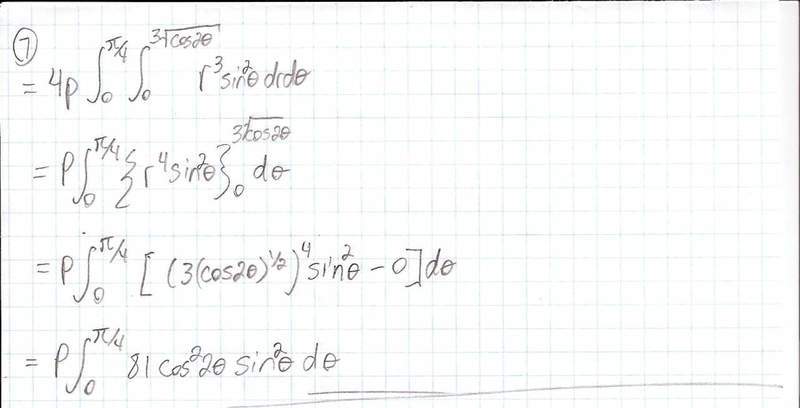 ⑦
= 4ρ ∫₀^{π/4} ∫₀^{3√cos2θ} r³ sin²θ dr dθ
= ρ ∫₀^{π/4} { r⁴ sin²θ }₀^{3√cos2θ} dθ
= ρ ∫₀^{π/4} [ (3(cos2θ)^{1/2})⁴ sin²θ - 0 ] dθ
= ρ ∫₀^{π/4} 81 cos²2θ sin²θ dθ